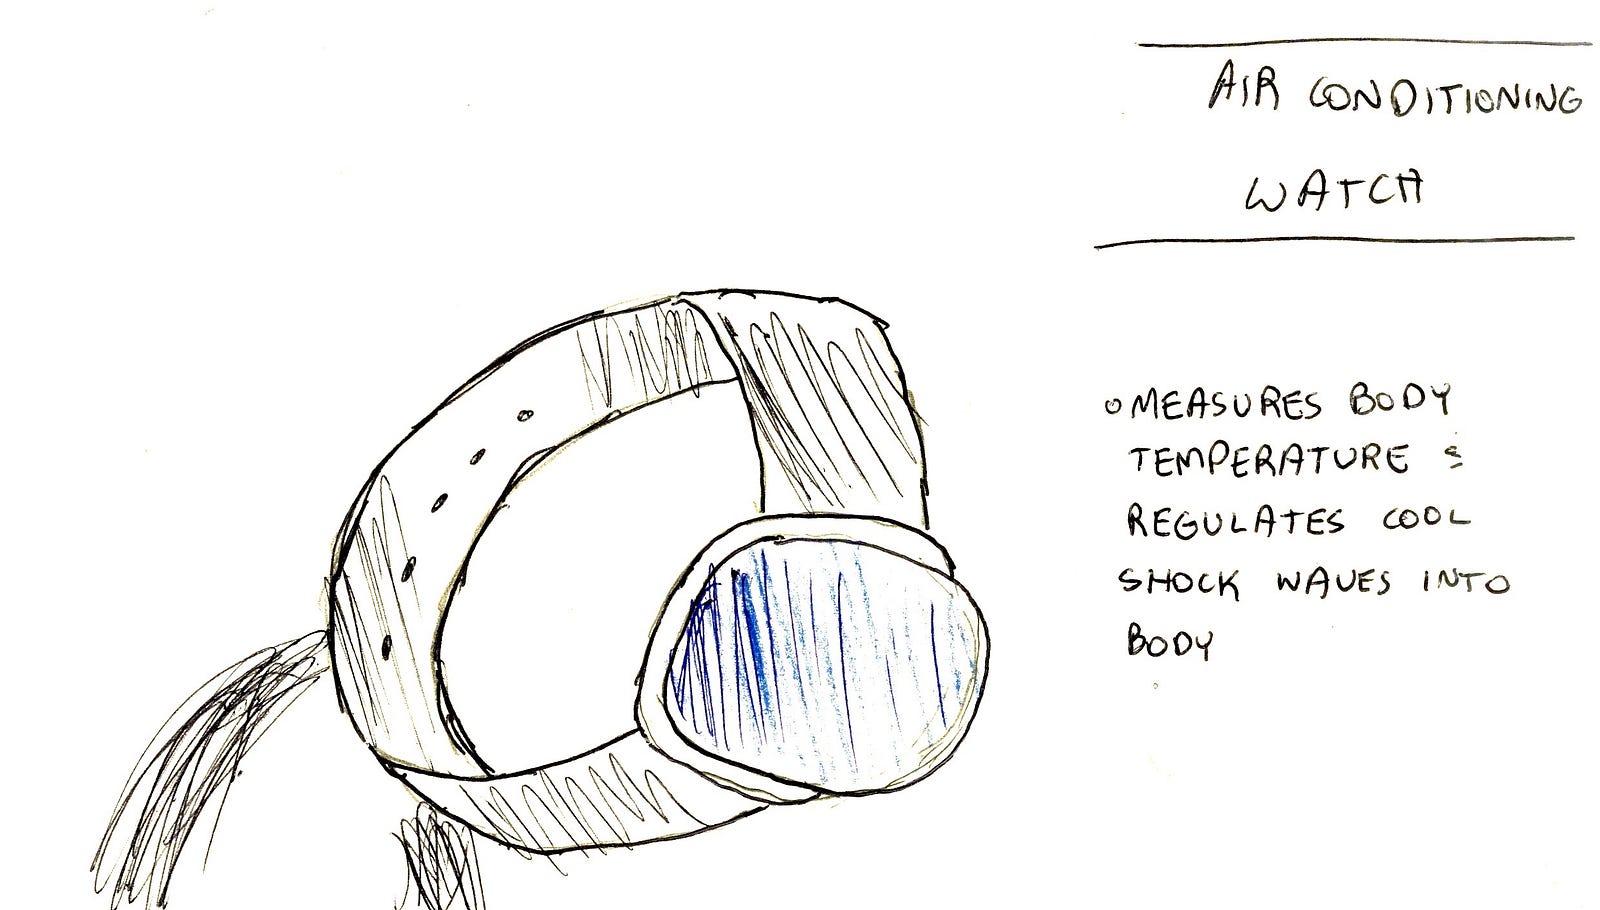 AIR CONDITIONING
WATCH
o MEASURES BODY
TEMPERATURE &
REGULATES COOL
SHOCK WAVES INTO
BODY